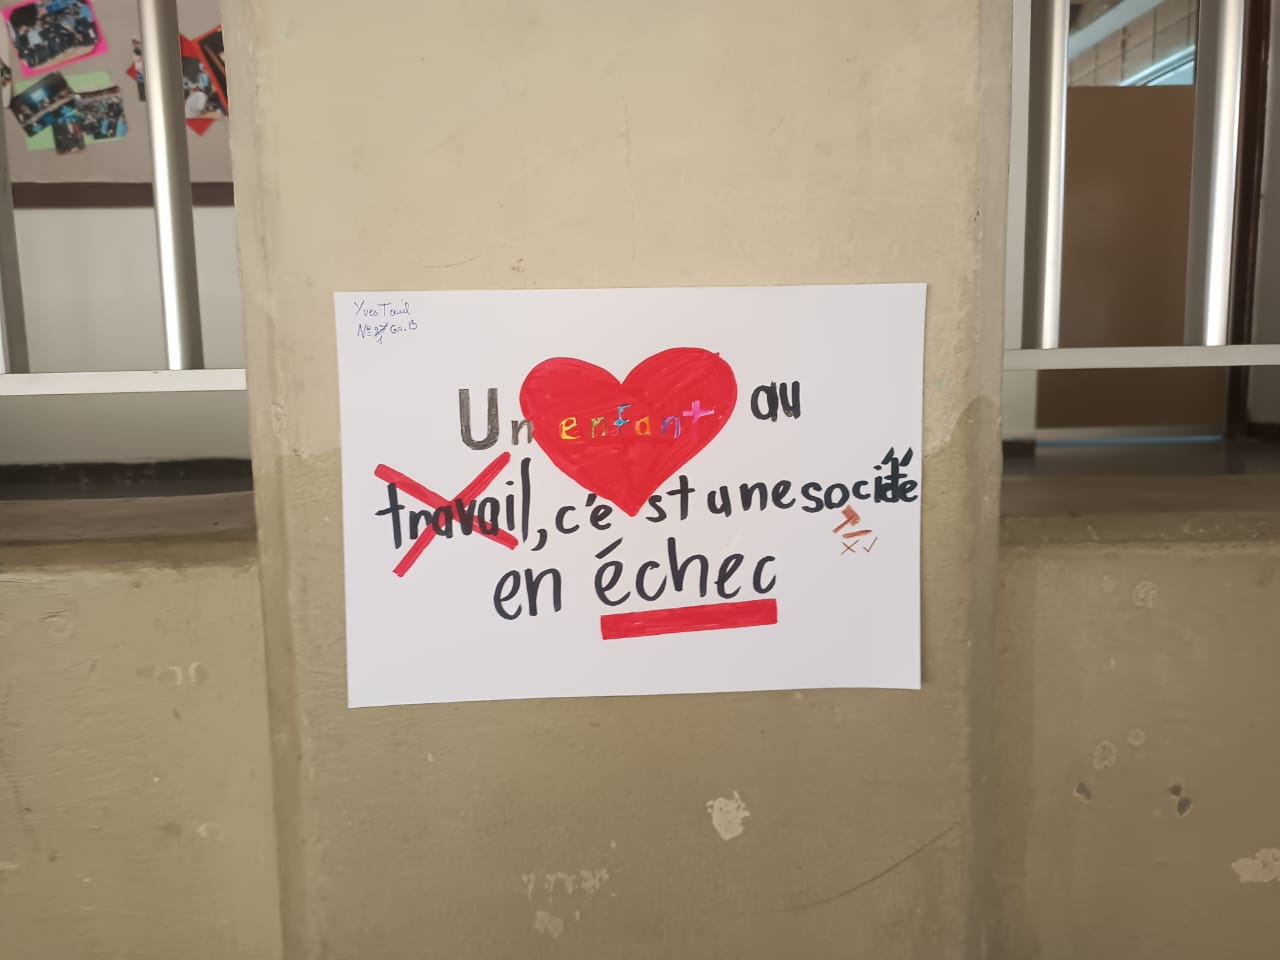 Yves Tawil
N° 1 Gr.B
Un enfant au
travail, c'ést une société
en échec